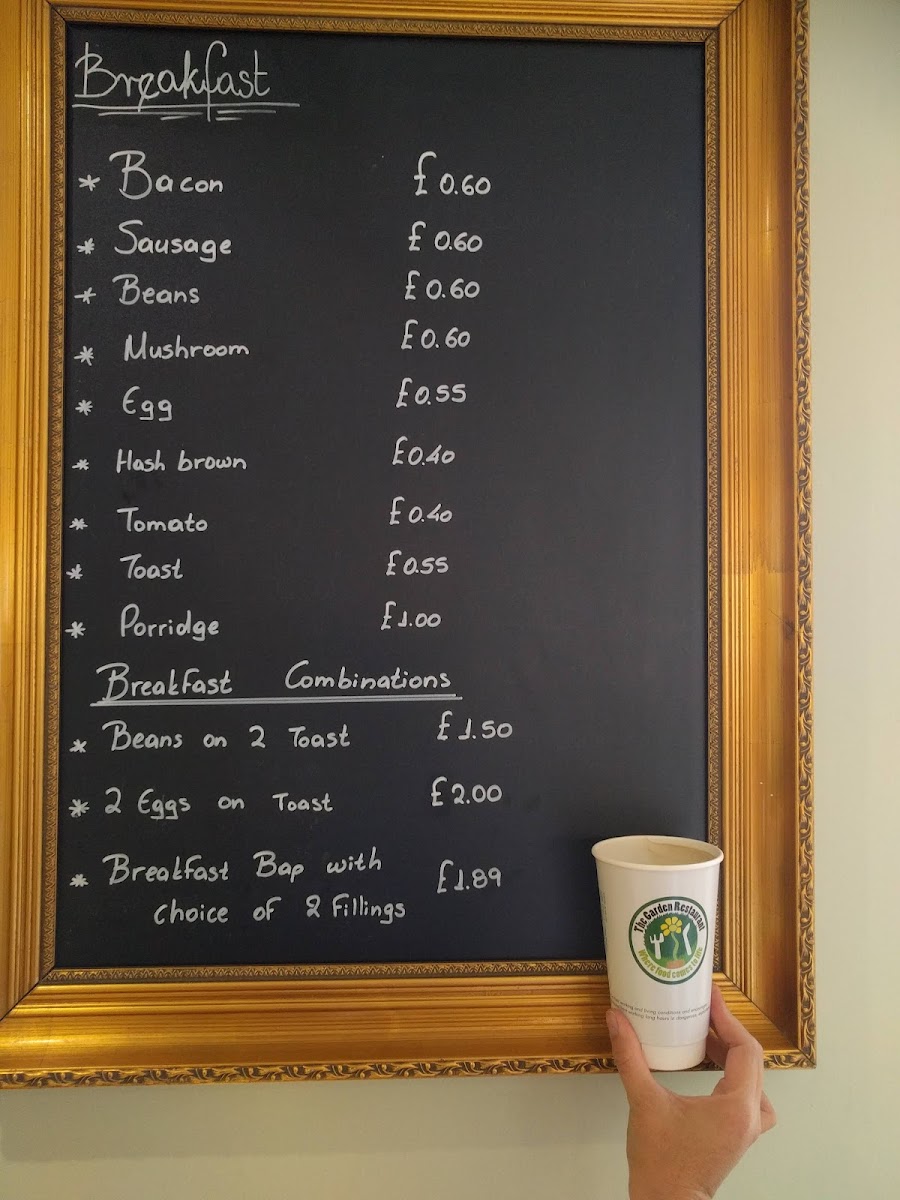 Breakfast
* Bacon £0.60
* Sausage £0.60
* Beans £0.60
* Mushroom £0.60
* Egg £0.55
* Hash brown £0.40
* Tomato £0.40
* Toast £0.55
* Porridge £1.00
Breakfast Combinations
* Beans on 2 Toast £1.50
* 2 Eggs on Toast £2.00
* Breakfast Bap with £1.89
choice of 2 Fillings
The Garden Restaurant
Where food comes to life